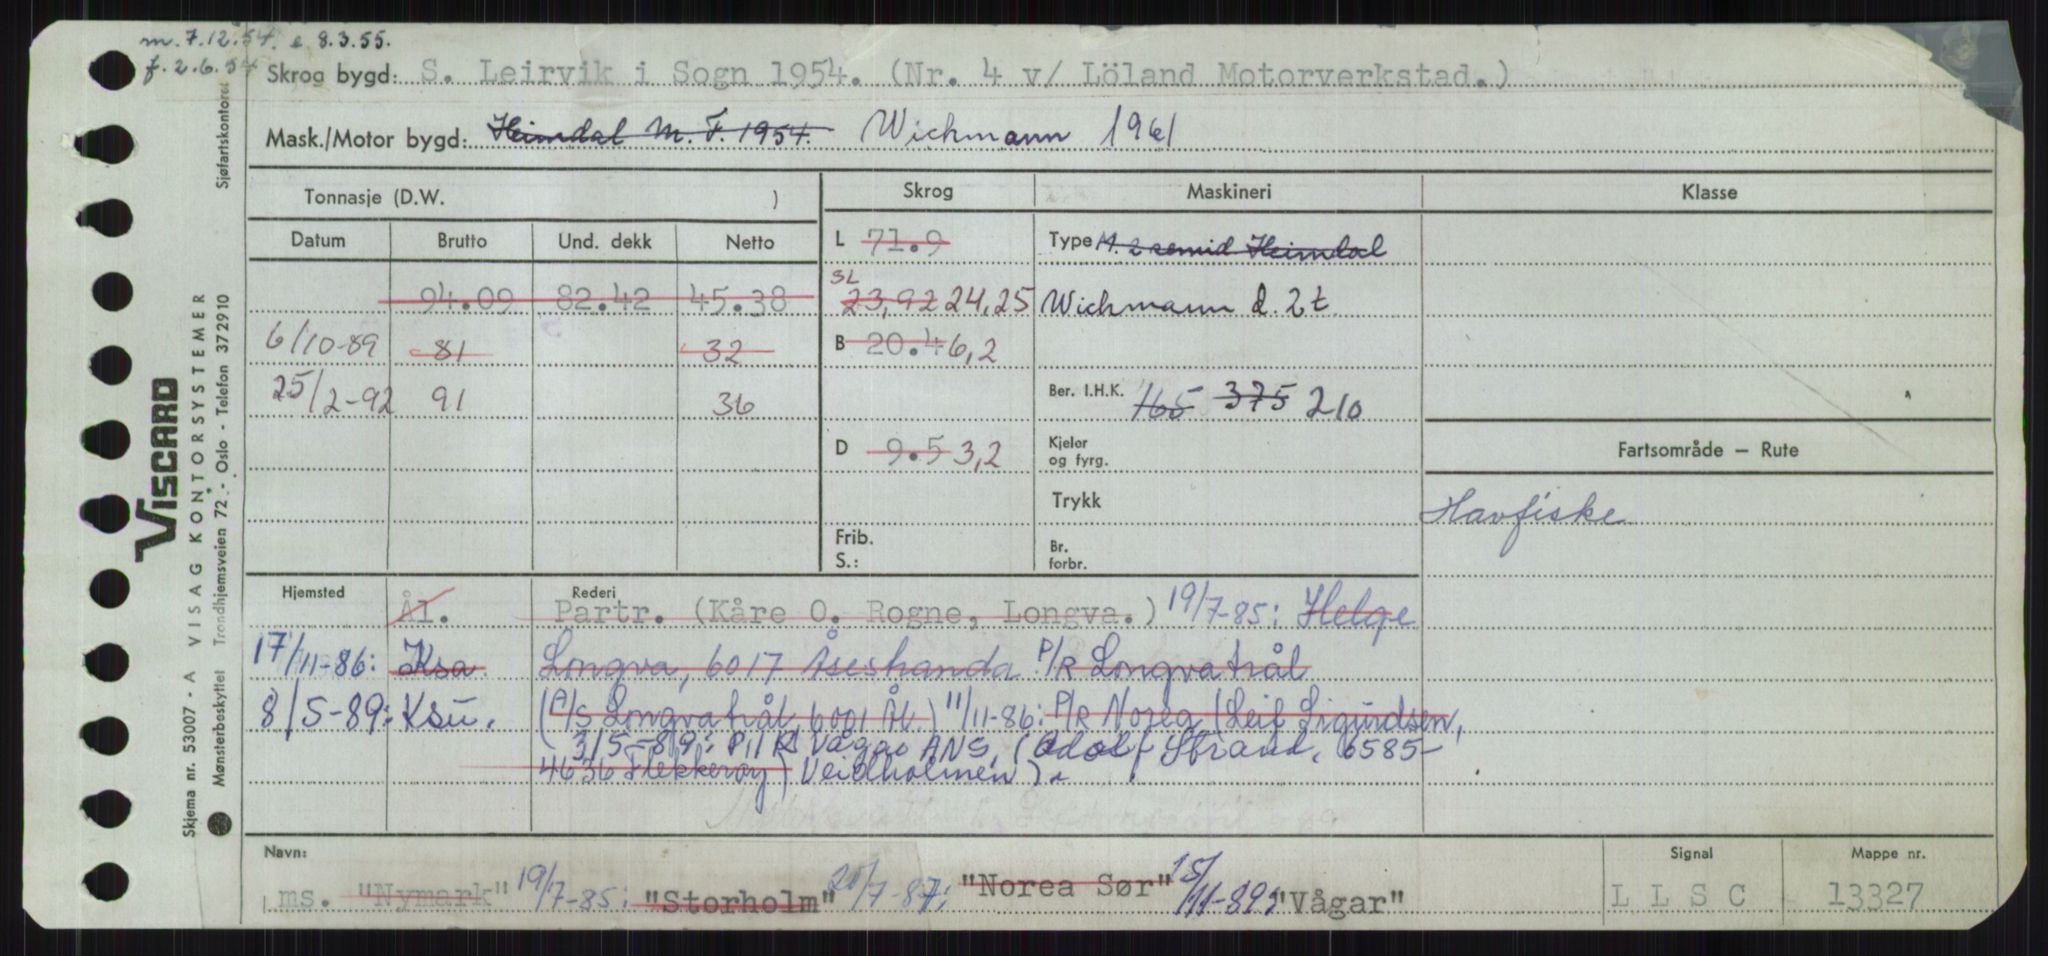 m. 7.12.54. e 8.3.55.
f. 2.6.54
Skrog bygd: S. Leirvik i Sogn 1954. (Nr. 4 v/ Löland Motorverkstad.)
Mask./Motor bygd: Heimdal M. F. 1954. Wichmann 1961
Tonnasje (D.W. ) Skrog Maskineri Klasse
Datum Brutto Und. dekk Netto L 71.9 Type M. 2 semid Heimdal
94.09 82.42 45.38 SL 23,92 24,25 Wichmann d. 2t
6/10-89 81 32 B 20.4 6,2
25/2-92 91 36 Ber. I.H.K. 165 375 210
D 9.5 3,2 Kjeler og fyrg. Fartsområde — Rute
Trykk Havfiske
Frib. S.: Br. forbr.
Hjemsted Ål. Rederi Partr. (Kåre O. Rogne, Longva.) 19/7-85: Helge
17/11-86: Ksa Longva, 6017 Åseshanda P/R Longvatrål
8/5-89: Ksu. (A/S Longvatrål, 6001 Ål.) 11/11-86: P/R Norea (Leif Sigurdsen,
3/5-89: P/R Vågar ANS. (Adolf Strand, 6585-
4636 Flekkerøy) Veidholmen).
Navn: Signal Mappe nr.
ms. "Nymark" 19/7-85: "Storholm" /7-87: "Norea Sør" 15/11-89: "Vågar" L L S C 13327
Sjøfartskontoret
VISCARD
A VISAG KONTORSYSTEMER
Trondhjemsveien 72 - Oslo - Telefon 372910
Skjema nr. 53007 - A
Mønsterbeskyttet